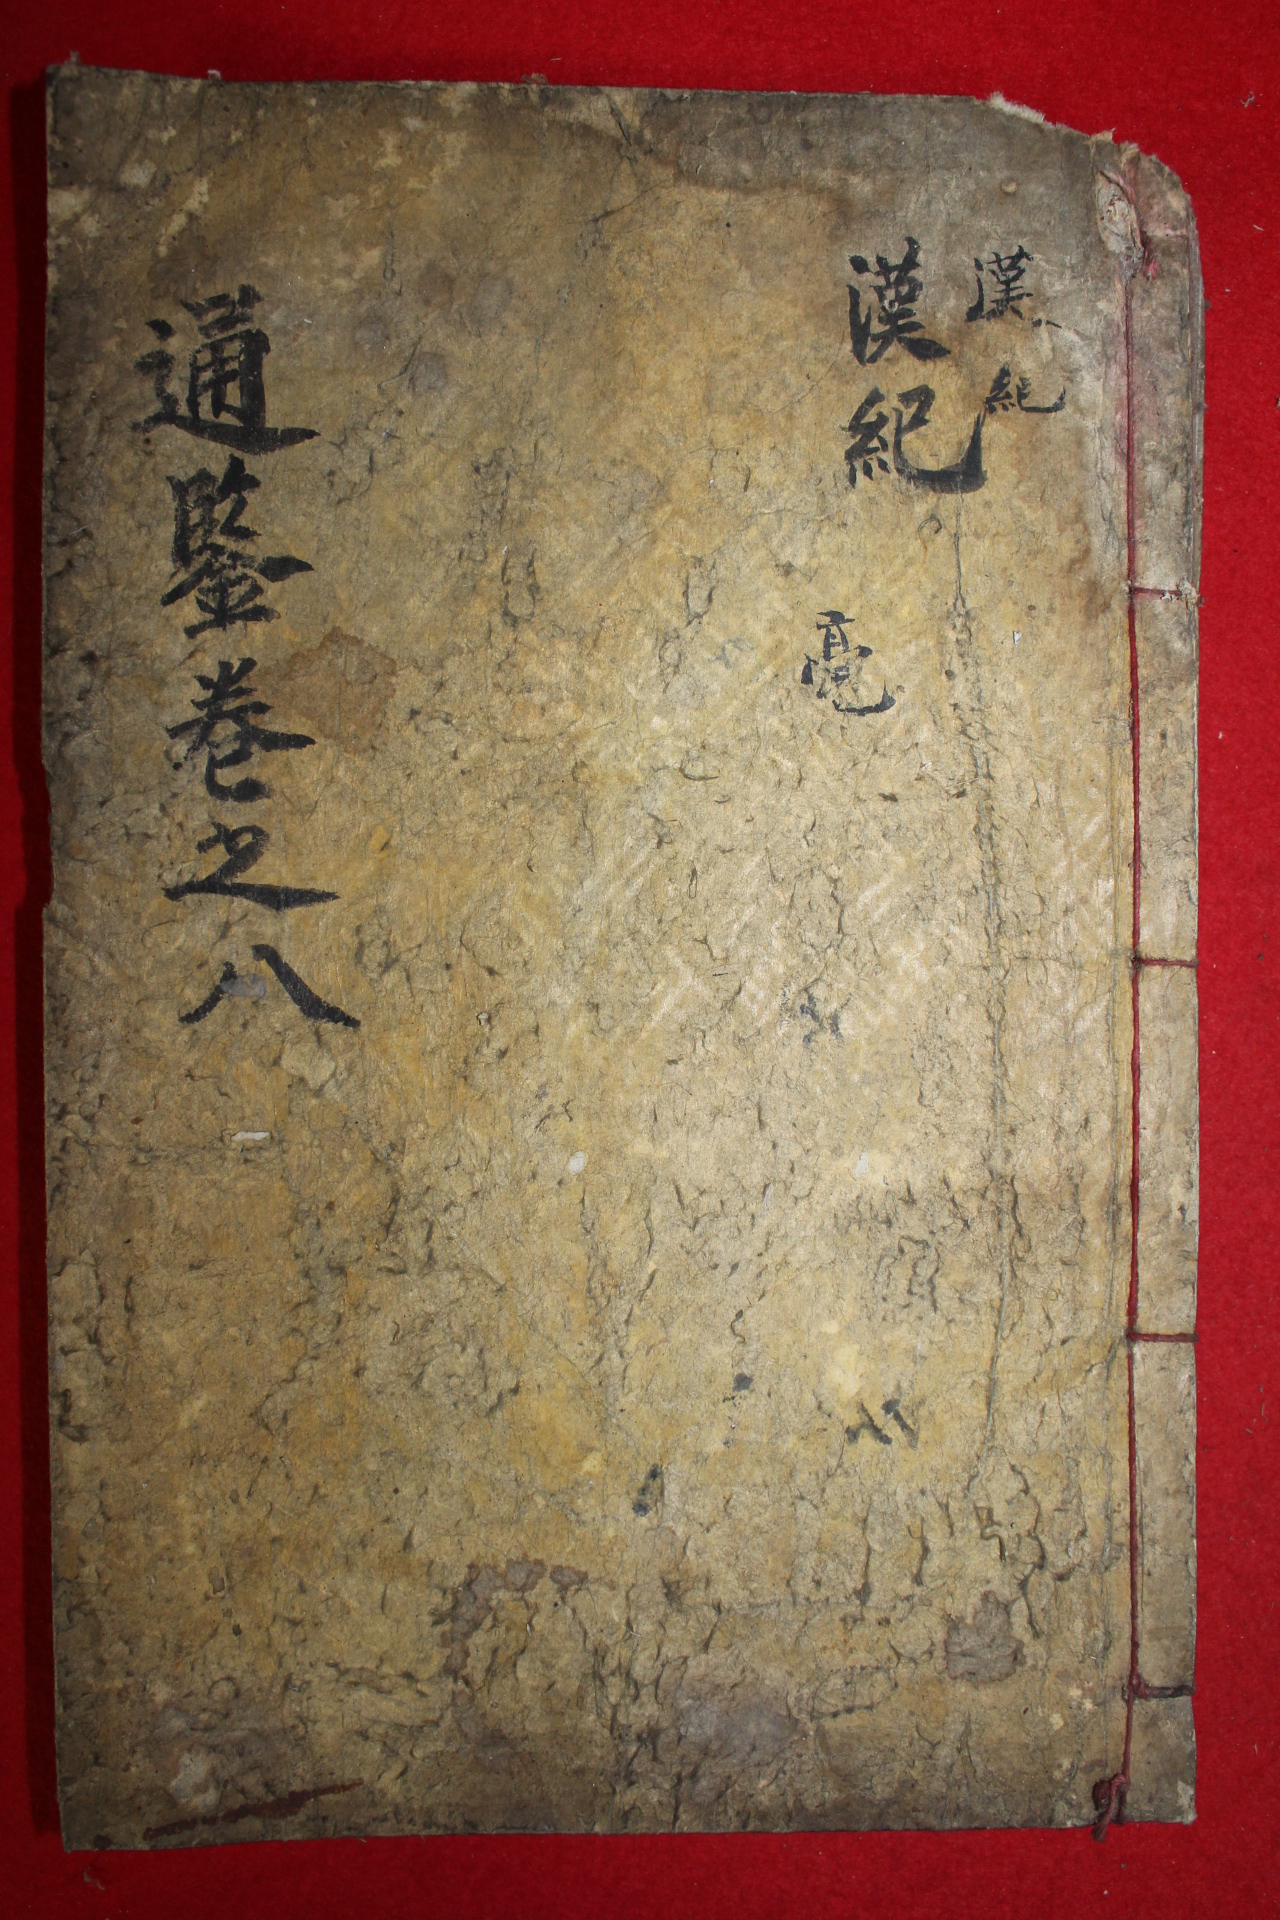 漢紀
漢紀
亮
通鑒卷之八